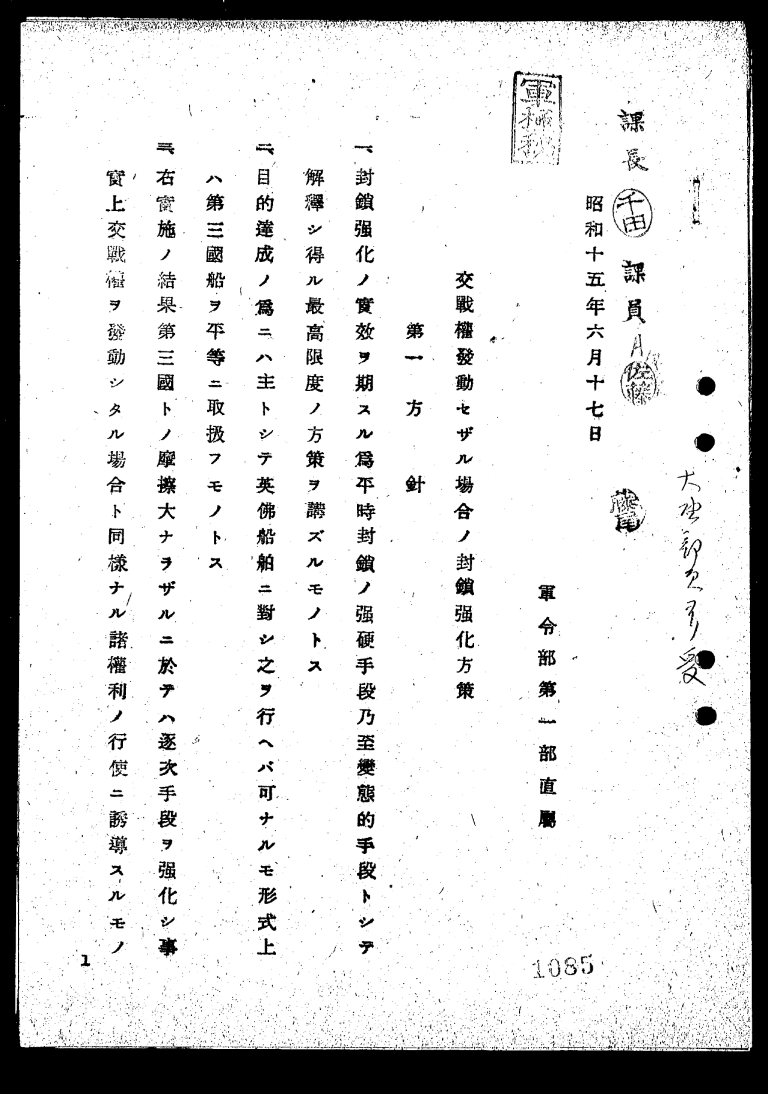 課長 千田 課員 佐藤
藤尾
軍極秘
昭和十五年六月十七日
軍令部第一部直屬
交戰權發動セザル場合ノ封鎖强化方策
第一 方針
一、封鎖强化ノ實效ヲ期スル爲平時封鎖ノ强硬手段乃至變態的手段トシテ
解釋シ得ル最高限度ノ方策ヲ講ズルモノトス
二、目的達成ノ爲ニハ主トシテ英佛船舶ニ對シ之ヲ行ヘバ可ナルモ形式上
ハ第三國船ヲ平等ニ取扱フモノトス
三、右實施ノ結果第三國トノ摩擦大ナラザルニ於テハ逐次手段ヲ强化シ事
實上交戰權ヲ發動シタル場合ト同樣ナル諸權利ノ行使ニ誘導スルモノ
1
1085